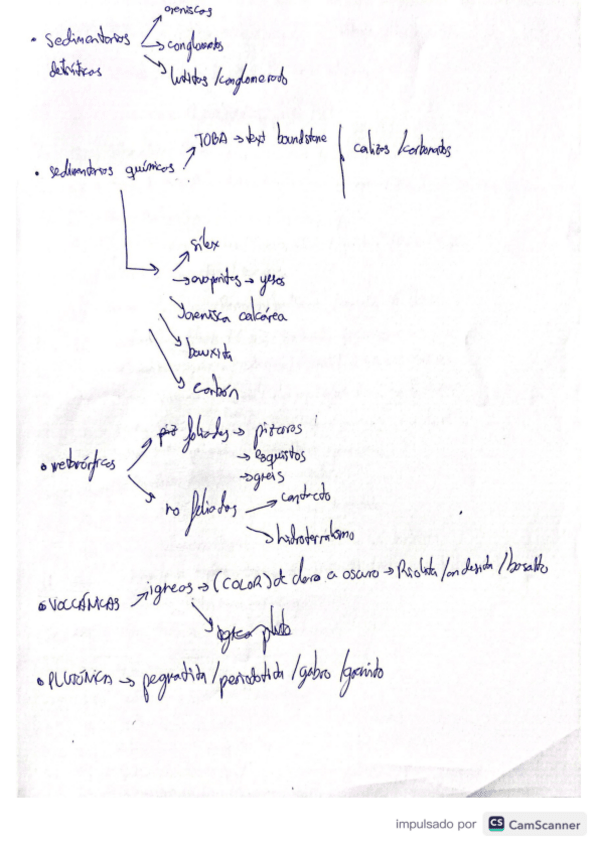 areniscas
• Sedimentarias → conglomerados
detríticas
lutitas / conglomerado
TOBA → text boundstone | calizas / carbonatos
• sedimentarias químicas
sílex
→ evaporitas → yesos
arenisca calcárea
bauxita
carbón
foliadas → pizarras
→ esquistos
• metamórficas
→ gneis
no foliadas → contacto
hidrotermalismo
• VOLCÁNICAS → ígneas → (COLOR) de claro a oscuro → Riolita / andesita / basalto
• PLUTÓNICA → pegmatita / peridotita / gabro / granito
impulsado por CS CamScanner